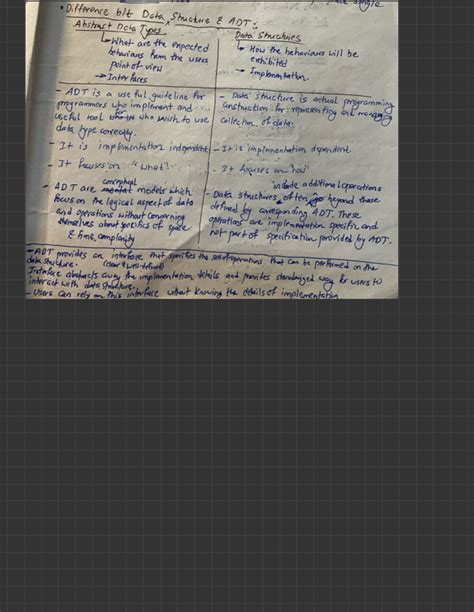 • Difference b/t Data Structure & ADT:
Abstract Data Types
↳ What are the expected
behaviours from the users
point of view
→ Interfaces
Data Structures
↳ How the behaviours will be
exhibited
→ Implementation.
- ADT is a useful guideline for
programmers who implement and
useful tool for who wish to use
data type correctly.
- It is implementation independent
- It focuses on "what".
- ADT are conceptual models which
focus on the logical aspect of data
and operations without concerning
themselves about specifics of space
& time complexity
- Data structure is actual programming
construction for representing and managing
collection of data.
- It is implementation dependent
- It focuses on "how"
include additional operations
- Data structures often beyond those
defined by corresponding ADT. These
operations are implementation specific and
not part of specification provided by ADT.
- ADT provides an interface that specifies the set of operations that can be performed on the
data structure. (clear & well-defined)
Interface abstracts away the implementation details and provides standarized way for users to
interact with data structure.
- Users can rely on this interface without knowing the details of implementation